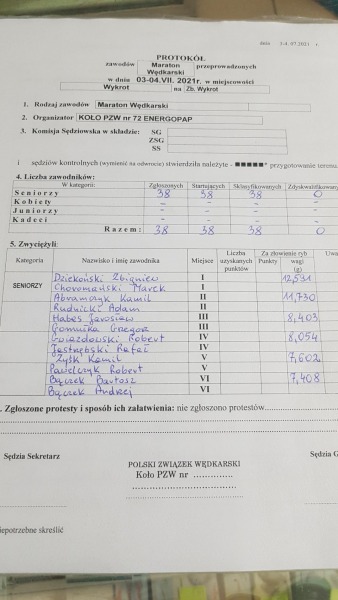 dnia 3-4.07.2021 r.
PROTOKÓŁ
zawodów Maraton Wędkarski przeprowadzonych
w dniu 03-04.VII. 2021r. w miejscowości
Wykrot na Zb. Wykrot
1. Rodzaj zawodów Maraton Wędkarski
2. Organizator KOŁO PZW nr 72 ENERGOPAP
3. Komisja Sędziowska w składzie: SG
ZSG
SS
i sędziów kontrolnych (wymienić na odwrocie) stwierdziła należyte - ■■■■■* przygotowanie terenu
4. Liczba zawodników:
W kategorii: Zgłoszonych Startujących Sklasyfikowanych Zdyskwalifikowany
Seniorzy 38 38 38 0
Kobiety - - - -
Juniorzy - - - -
Kadeci - - - -
Razem: 38 38 38 0
5. Zwyciężyli:
Kategoria Nazwisko i imię zawodnika Miejsce Liczba uzyskanych punktów Za złowienie ryb Uwa
Punkty wagi (g)
SENIORZY Dziekoński Zbigniew I 12,531
Choromański Marek I
Abramczyk Kamil II 11,730
Rudnicki Adam II
Habes Jarosław III 8,403
Gomułka Gregor III
Gwiazdowski Robert IV 8,054
Jastrzębski Rafał IV
Zyśk Kamil V 7,602
Pawelczyk Robert V
Bączek Bartosz VI 7,408
Bączek Andrej VI
. Zgłoszone protesty i sposób ich załatwienia: nie zgłoszono protestów
Sędzia Sekretarz Sędzia G
POLSKI ZWIĄZEK WĘDKARSKI
Koło PZW nr ..............
iepotrzebne skreślić